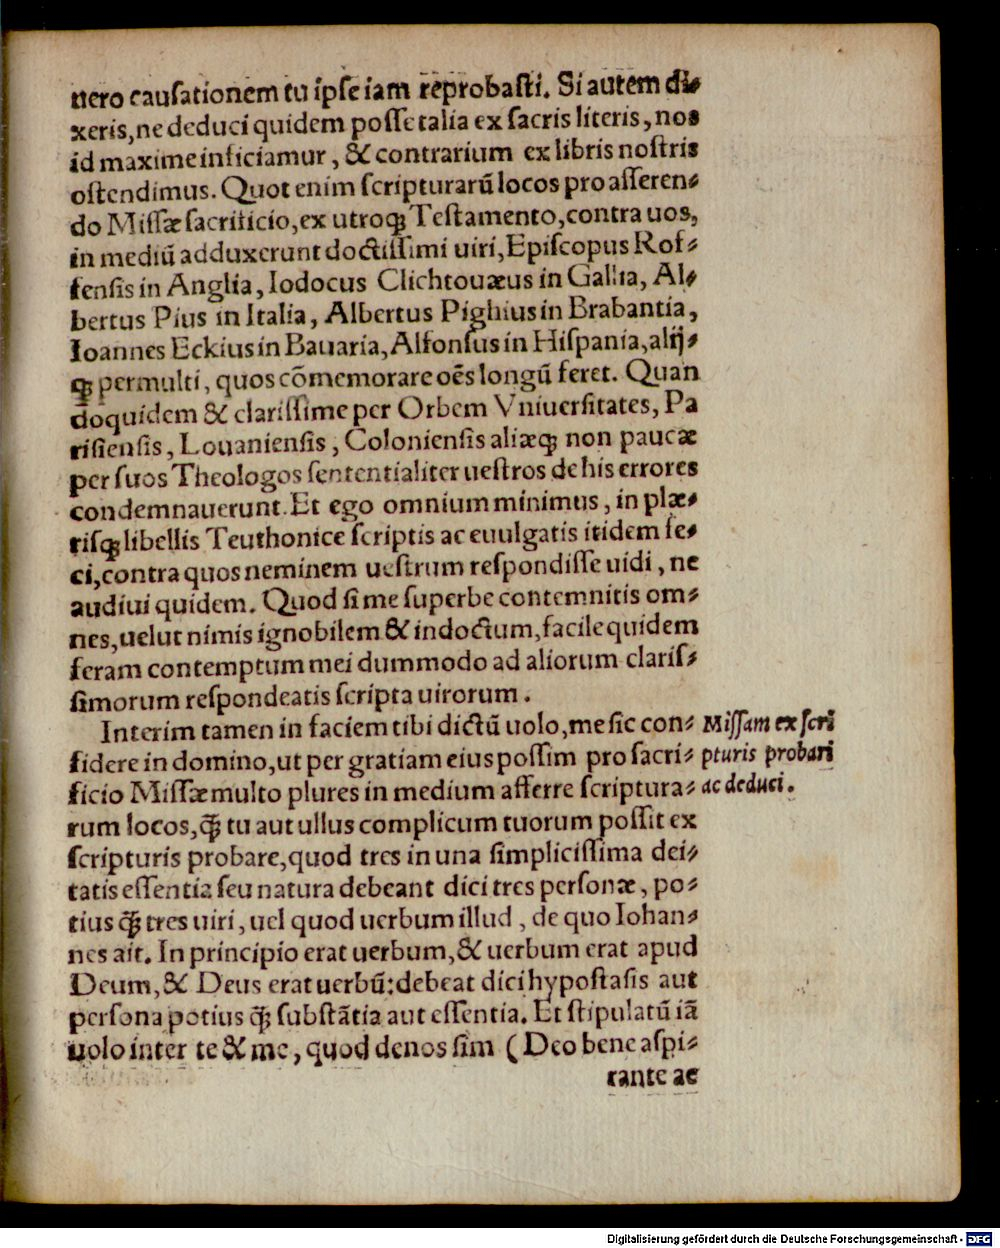 uero causationem tu ipse iam reprobasti. Si autem di⸗
xeris, ne deduci quidem posse talia ex sacris literis, nos
id maxime inficiamur, & contrarium ex libris nostris
ostendimus. Quot enim scripturarū locos pro asseren⸗
do Missæ sacrificio, ex utroqꝫ Testamento, contra uos,
in mediū adduxerunt doctissimi uiri, Episcopus Rof⸗
fensis in Anglia, Iodocus Clichtouæus in Gallia, Al⸗
bertus Pius in Italia, Albertus Pighius in Brabantia,
Ioannes Eckius in Bauaria, Alfonsus in Hispania, alij⸗
qꝫ permulti, quos cōmemorare oēs longū feret. Quan
doquidem & clarissime per Orbem Vniuersitates, Pa
risiensis, Louaniensis, Coloniensis aliæqꝫ non paucæ
per suos Theologos sententialiter uestros de his errores
condemnauerunt. Et ego omnium minimus, in plæ⸗
risqꝫ libellis Teuthonice scriptis ac euulgatis itidem fe⸗
ci, contra quos neminem uestrum respondisse uidi, ne
audiui quidem. Quod si me superbe contemnitis om⸗
nes, uelut nimis ignobilem & indoctum, facile quidem
feram contemptum mei dummodo ad aliorum claris⸗
simorum respondeatis scripta uirorum.
Interim tamen in faciem tibi dictū uolo, me sic con⸗
fidere in domino, ut per gratiam eius possim pro sacri⸗
ficio Missæ multo plures in medium afferre scriptura⸗
rum locos, q̃ꝫ tu aut ullus complicum tuorum possit ex
scripturis probare, quod tres in una simplicissima dei⸗
tatis essentia seu natura debeant dici tres personæ, po⸗
tius q̃ꝫ tres uiri, uel quod uerbum illud, de quo Iohan⸗
nes ait. In principio erat uerbum, & uerbum erat apud
Deum, & Deus erat uerbū: debeat dici hypostasis aut
persona potius q̃ꝫ substātia aut essentia. Et stipulatū iā
uolo inter te & me, quod denos sim (Deo bene aspi⸗
rante ac
Missam ex scri
pturis probari
ac deduci.
Digitalisierung gefördert durch die Deutsche Forschungsgemeinschaft - DFG